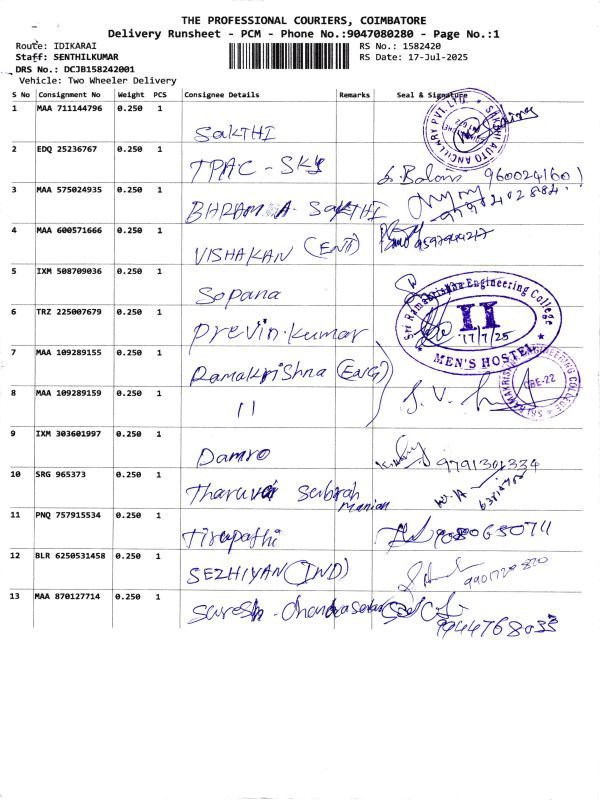 THE PROFESSIONAL COURIERS, COIMBATORE
Delivery Runsheet - PCM - Phone No.:9047080280 - Page No.:1
Route: IDIKARAI
RS No.: 1582420
Staff: SENTHILKUMAR
RS Date: 17-Jul-2025
DRS No.: DCJB158242001
Vehicle: Two Wheeler Delivery
S No Consignment No Weight PCS Consignee Details Remarks Seal & Signature
1 MAA 711144796 0.250 1 SAKTHI
SAKTHI AUTO ANCILLARY PVT. LTD.
2 EDQ 25236767 0.250 1 TPAC - SKY 9600241601
3 MAA 575024935 0.250 1 SAKTHI
4 MAA 600571666 0.250 1 VISHAKAN (ENT)
5 IXM 508709036 0.250 1 Sopana
6 TRZ 225007679 0.250 1 Previn.kumar
Sri Ramakrishna Engineering College
II
17/7/25
MEN'S HOSTEL
7 MAA 109289155 0.250 1 Ramakrishna (ENG)
8 MAA 109289159 0.250 1 11
SRI RAMAKRISHNA ENGINEERING COLLEGE
CBE-22
9 IXM 303601997 0.250 1 Damro 9791301334
10 SRG 965373 0.250 1
11 PNQ 757915534 0.250 1 Tirupathi 908065071
12 BLR 6250531458 0.250 1 SEZHIYAN (IND) 9901720820
13 MAA 870127714 0.250 1 Suresh - 9944768033